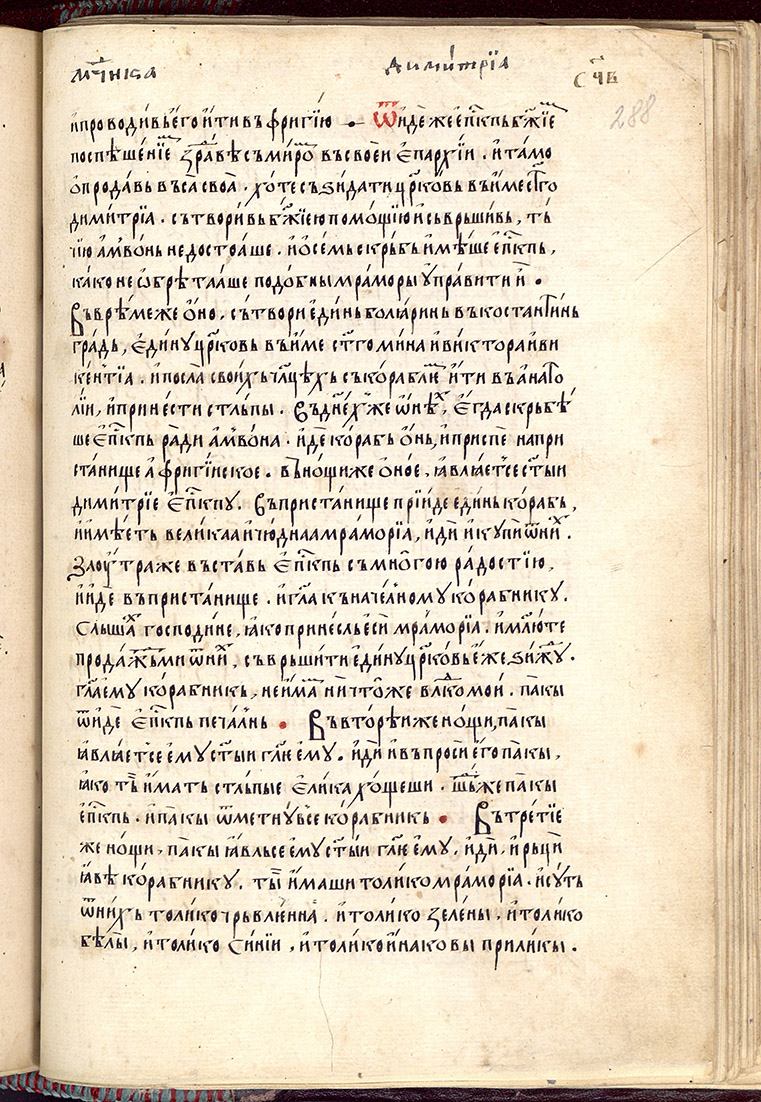 мч҃нїка димѝтрїа сч҃в
288
и҆проводи́вь є҆го и҆ти въ фригі́ю · ѿи́де же є҆пⷭ҇кпь бж҃їе
поспѣше́нїе здра́вѣ съ ми́рѡⷨ въ своеи є҆пархі́и · и҆ та́мо
ѻ҆прода́вь въса̀ своа̀ · хо́те съꙁи́дати црⷦ҇овь въ и́ме ст҃го
димѝтрїа · сътвори́вь бж҃їею по́мощїю и҆ съврьши́вь, ть́
чїю а҆мво́нь недостоа́ше · и҆ ѻ҆ се́мь скръ́бь и҆мѣ́ше є҆пⷭ҇кпь,
ка́ко не ѡ҆брѣта́аше подо́бны мра́моры ᲂу҆пра́вити и҆̀ ·
Въ врѣ́ме же ѻ҆́но · сътвори є҆ди́нь болꙗ́ринь въ костанти́нь
гра́дь, є҆ди́нꙋ црⷦ҇овь въ и́ме ст҃го ми́на и҆ ви́ктора и҆ ви
ке́нтїа · и҆ посла̀ свои́хь чл҃цѣхь съ кора́блїе и҆ти въ а҆нато
лїи, и҆ прине́сти стлъпы · Въ дн҃ехⷤ же ѡ҆нѣⷯ, є҆гда скръбѣ́
ше є҆пⷭ҇кпь ра́ди а҆мво́на · и҆́де кора́бь ѻ҆́нь, и҆ приспе на при
ста́нище а҆фригі́иское · въ но́щи же ѻ҆́ное, ꙗ҆влꙗ́етсе ст҃ыи
дими́трїе є҆пⷭ҇кпꙋ · Въ приста́нище прїи́де еди́нь кора́бь,
и҆ и҆мѣ́еть вели́каа и҆ чю́днаа мрамо́рїа, и҆дѝ и҆ кꙋпѝ ѿ ниⷯ ·
Заᲂу́тра же въста́вь є҆пⷭ҇кпь съ мно́гою ра́достїю,
и҆ и҆́де въ приста́нище · и҆ гл҃а къ наче́лномꙋ кора́бникꙋ ·
Слы́шаⷯ господи́не, ꙗ҆ко прине́сль є҆си мрамо́рїа · и҆ млю́ те
прода́ждь ми ѿ ниⷯ, съврьши́ти є҆ди́нꙋ црⷦ҇овь є҆́же ꙁи́ждꙋ ·
гл҃а є҆мꙋ кора́бникь, не и҆́мамь ничто́же влⷣко мои · па́кы
ѿи́де є҆пⷭ҇кпь печа́лнь · Въ вторѣ́и же но́щи, па́кы
ꙗ҆влꙗ́етсе є҆мꙋ ст҃ыи гл҃ю є҆мꙋ · и҆дѝ и҆ въпросѝ є҆го па́кы,
ꙗ҆ко тъ̀ и҆́мать стлъпы́е є҆ли́ка хо́щеши · шⷣъ же па́кы
є҆пⷭ҇кпь · и҆ па́кы ѿметнꙋ̀ се кора́бникь · Въ тре́тїе
же но́щи, па́кы ꙗ҆вльсе є҆мꙋ ст҃ыи гл҃ю є҆мꙋ · и҆дѝ, и҆ рьцѝ
ꙗ҆вѣ̀ кора́бникꙋ · ты̀ и҆́маши толи́ко мрамо́рїа · и҆ сꙋ́ть
ѿ ни́хь толи́ко чрьвле́нна · и҆ толи́ко зеле́ны · и҆ толи́ко
бѣ́лы, и҆ толи́ко си́нїи, и҆ толи́ко и҆на́ковы прили́кы ·